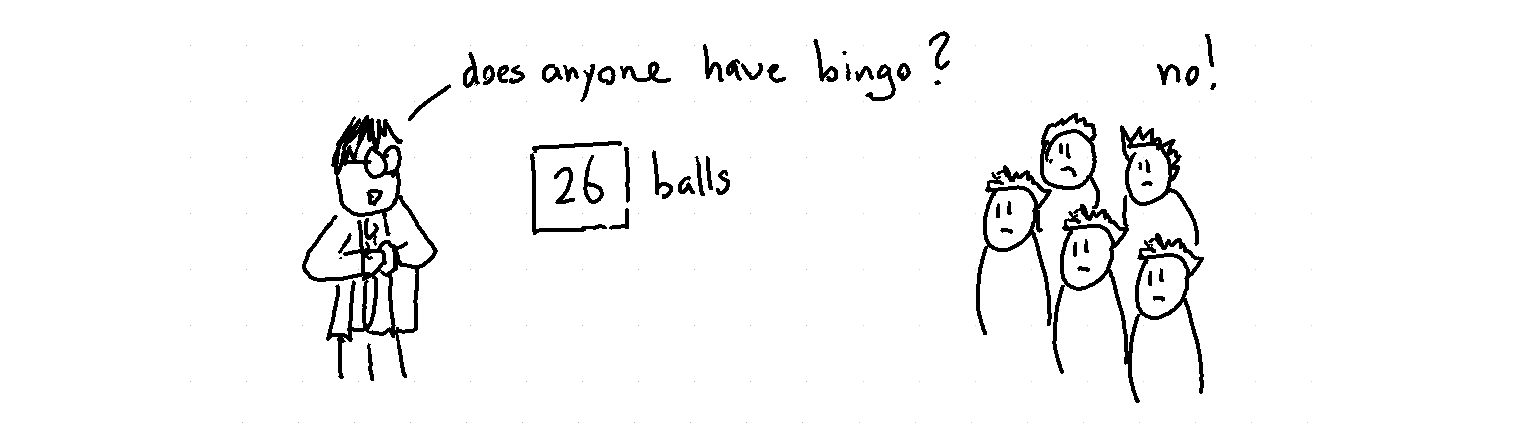 does anyone have bingo?
no!
26 balls